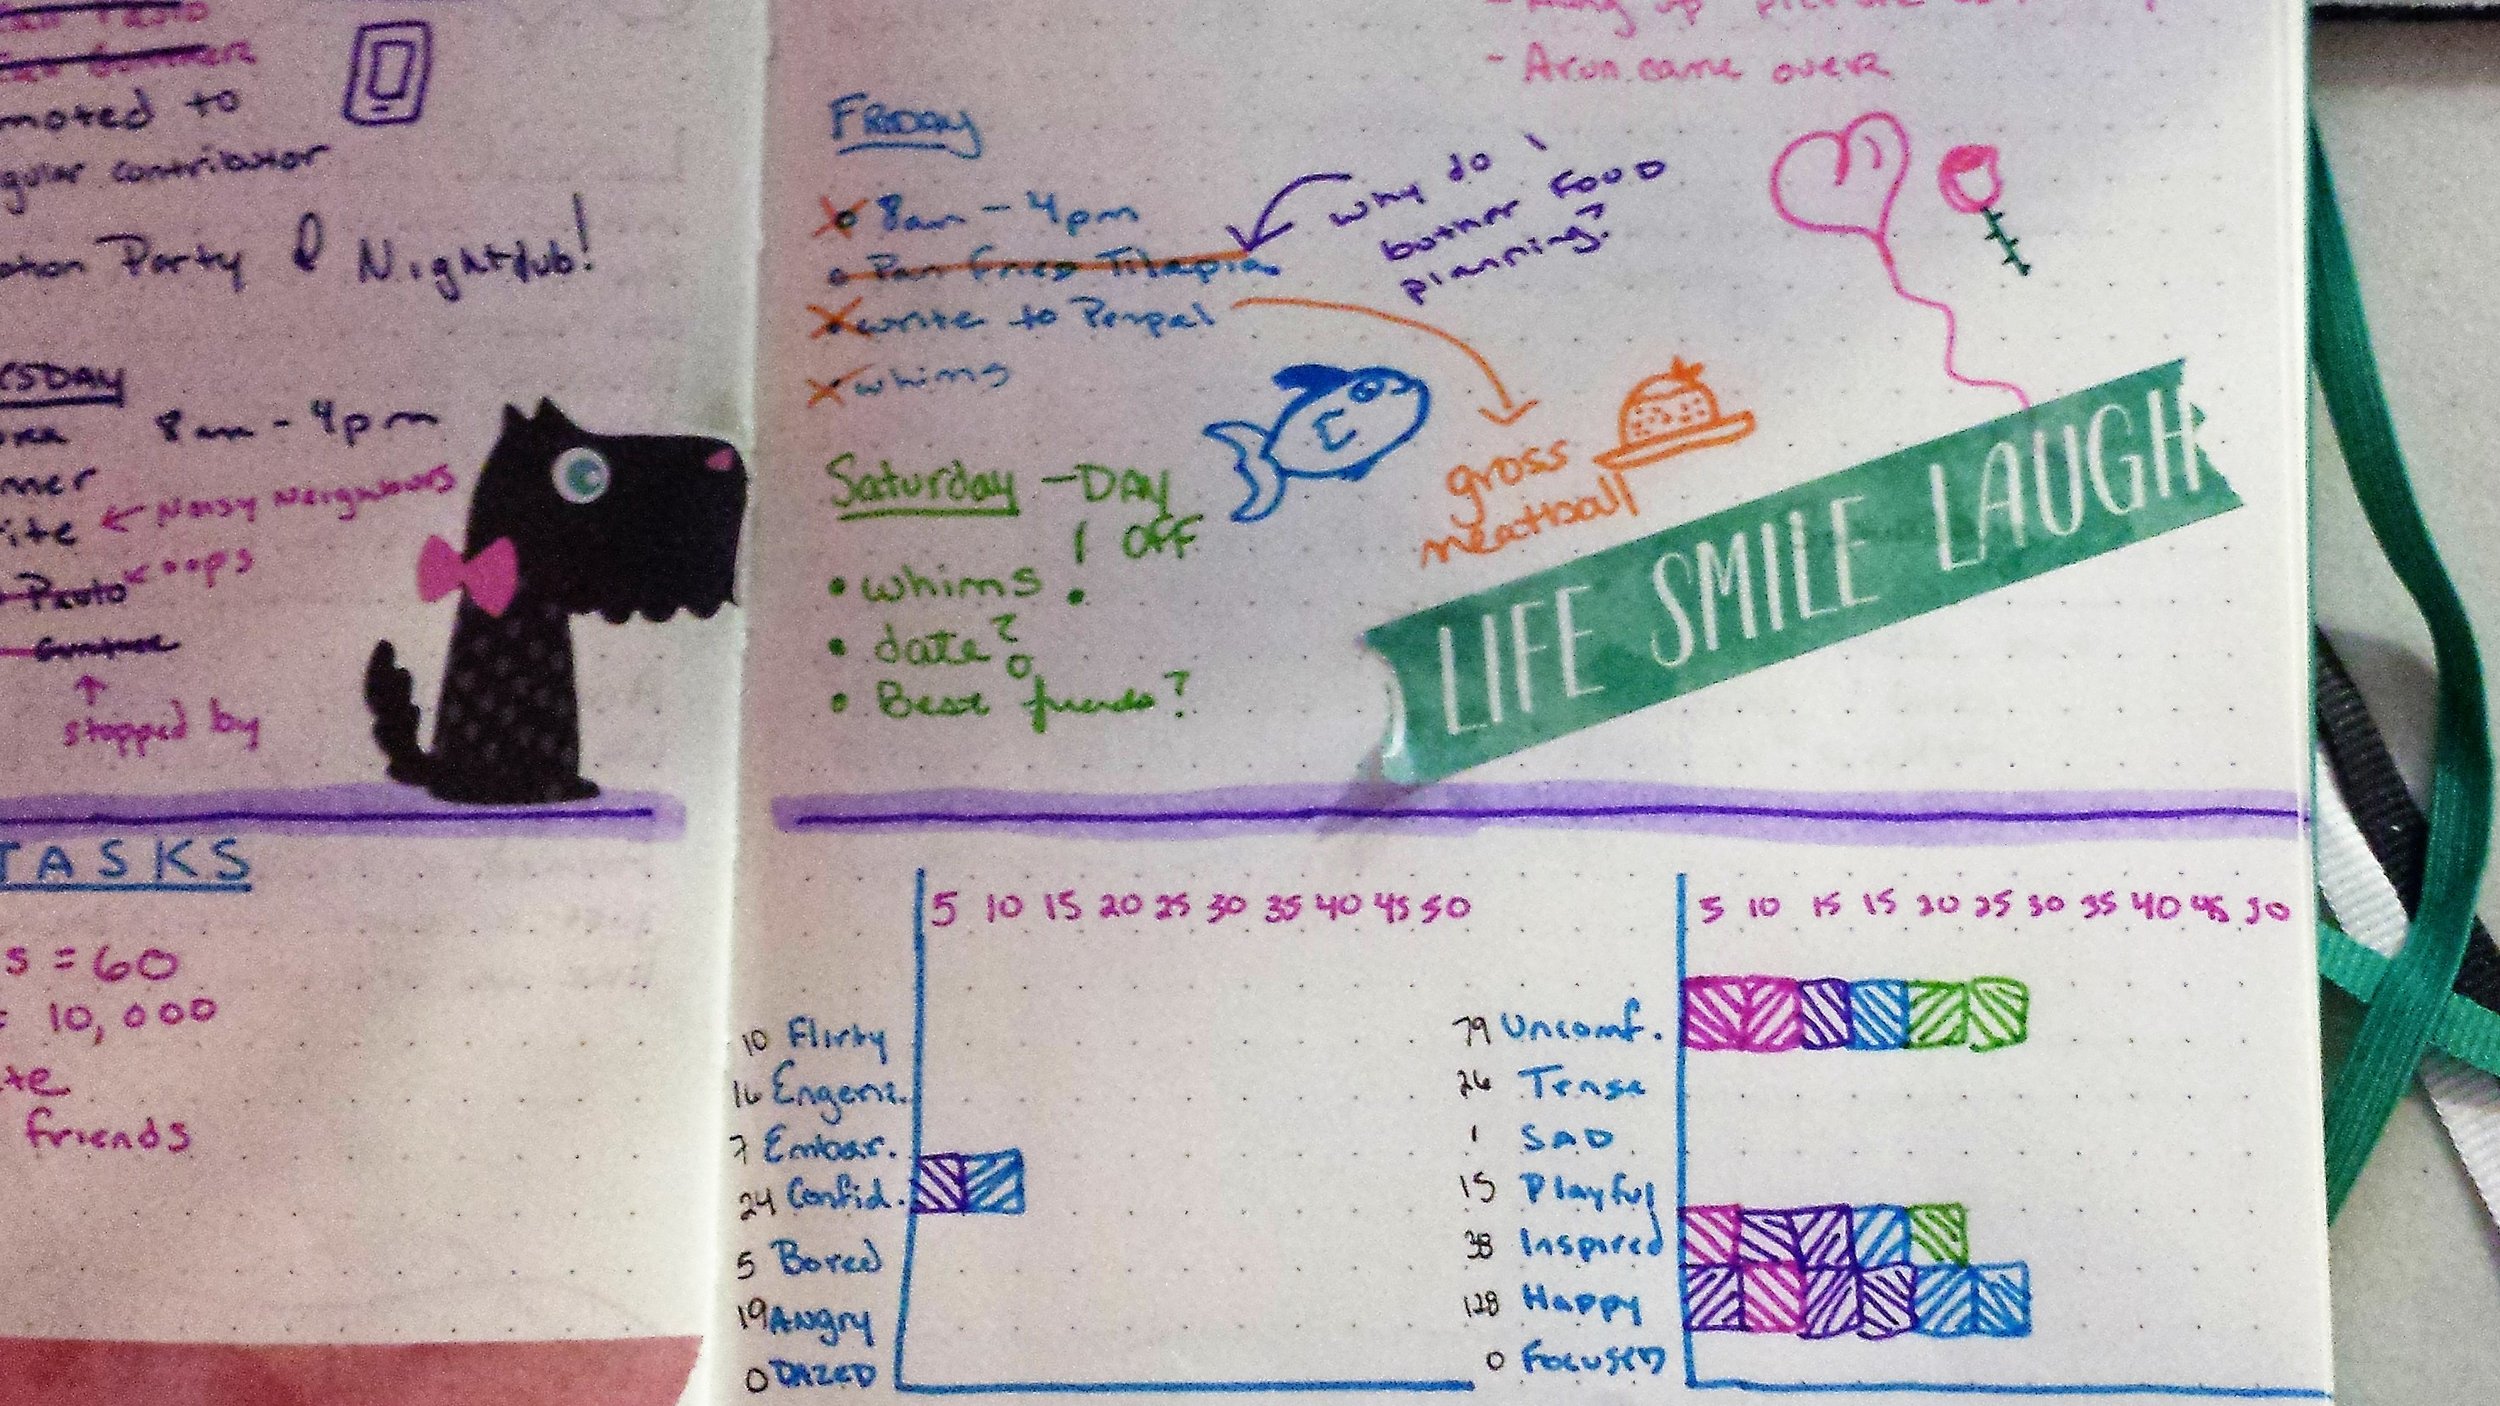 moted to
gular contributor
Party & Nightclub!
SDAY
8am - 4pm
ner
Noisy Neighbours
ite
oops
Pasta
stopped by
TASKS
s = 60
= 10,000
te
friends
- Arun came over
FRIDAY
8am - 4pm
Pan Fried Tilapia
why do I
bother food
planning?
write to Penpal
whims
gross
meatball
Saturday - DAY
1 OFF
• whims
• date?
• Best friends?
LIFE SMILE LAUGH
5 10 15 20 25 30 35 40 45 50
10 Flirty
16 Engerz.
7 Embar.
24 Confid.
5 Bored
19 Angry
0 DAZED
5 10 15 15 20 25 30 35 40 45 50
79 Uncomf.
26 Tense
1 SAD
15 Playful
38 Inspired
128 Happy
0 Focused